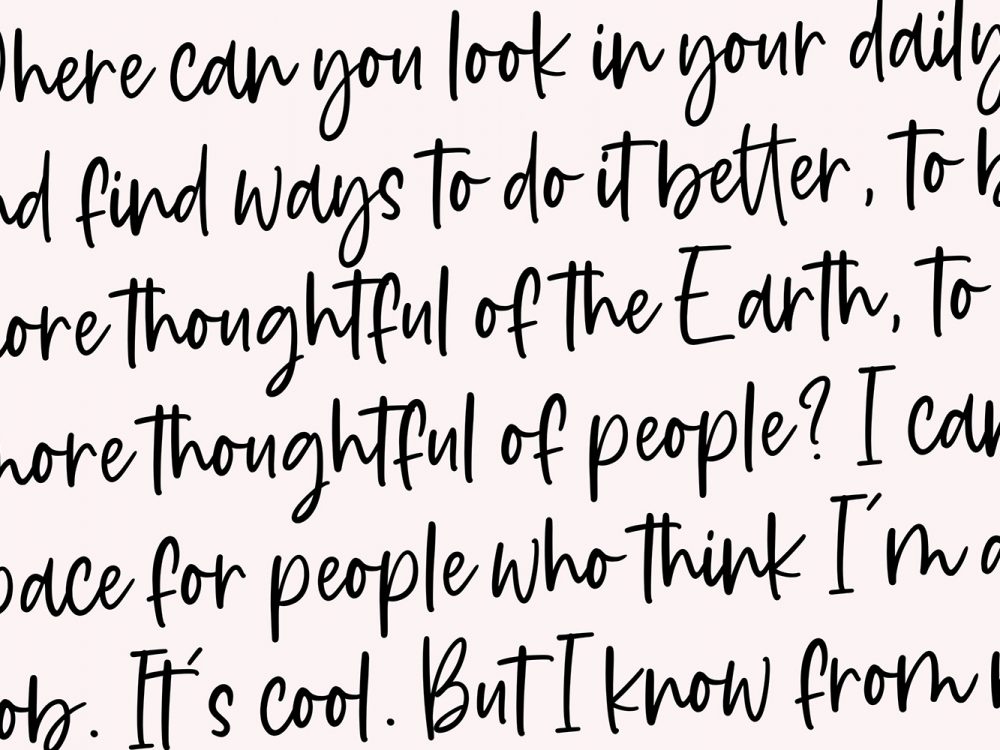 Where can you look in your daily
nd find ways to do it better, to b
ore thoughtful of the Earth, to
more thoughtful of people? I can
pace for people who think I'm a
ob. It's cool. But I know from